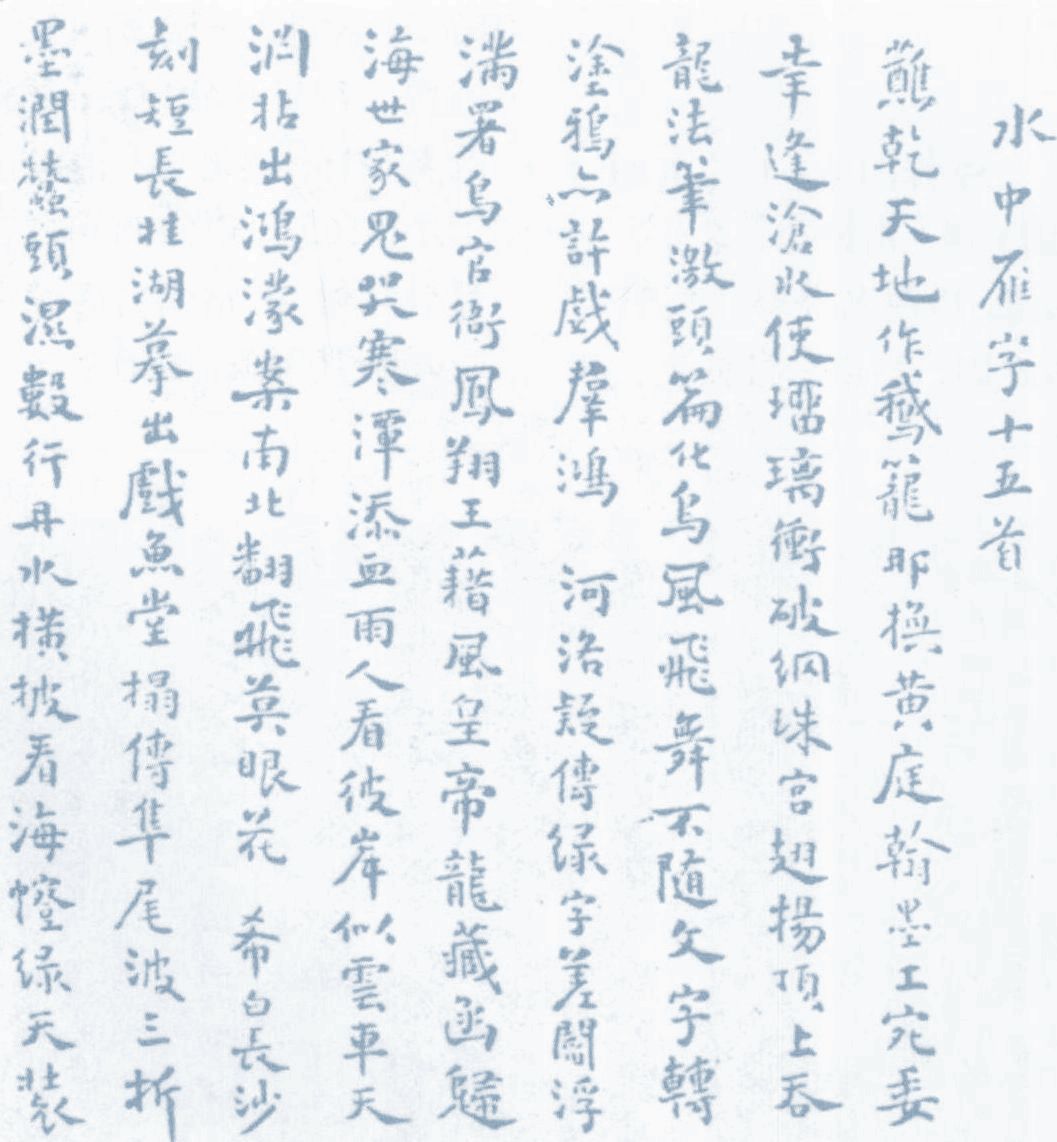 水中雁字十五首
蘸乾天地作鵞籠耶換黄庭翰墨工宛委
幸逢滄水使瑠璃衝破網珠宮翅揚項上吞
龍法筆激頭篇化烏風飛舞不隨文字轉
塗鴉亦許戲羣鴻 河洛疑傳緑字差闘浮
滿署鳥官衙鳳翔王藉風皇帝龍藏函歸
海世家鬼哭寒潭添血雨人看彼岸似雲車天
淵拈出鴻濛案南北翻飛莫眼花 希白長沙
刻短長挂湖摹出戲魚堂搨傳隼尾波三折
墨潤蠭頭濕數行丹水橫披看海幢緑天裝